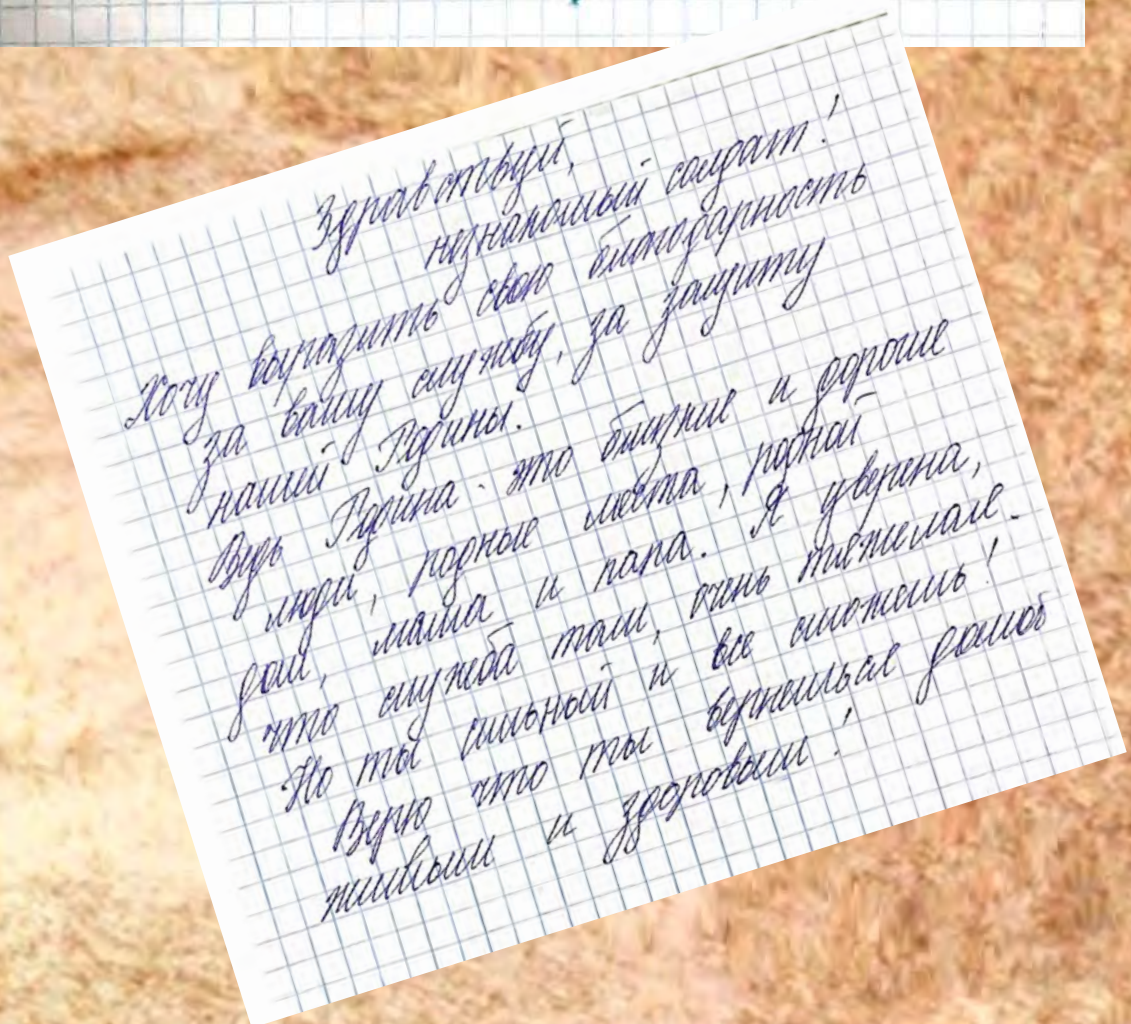 Здравствуй,
незнакомый солдат!
Хочу выразить свою благодарность
за вашу службу, за защиту
нашей Родины.
Ведь Родина - это близкие и дорогие
люди, родные места, родной
дом, мама и папа. Я уверена,
что служба там, очень тяжелая.
Но ты сильный и все сможешь!
Верю что ты вернешься домой
живым и здоровым!